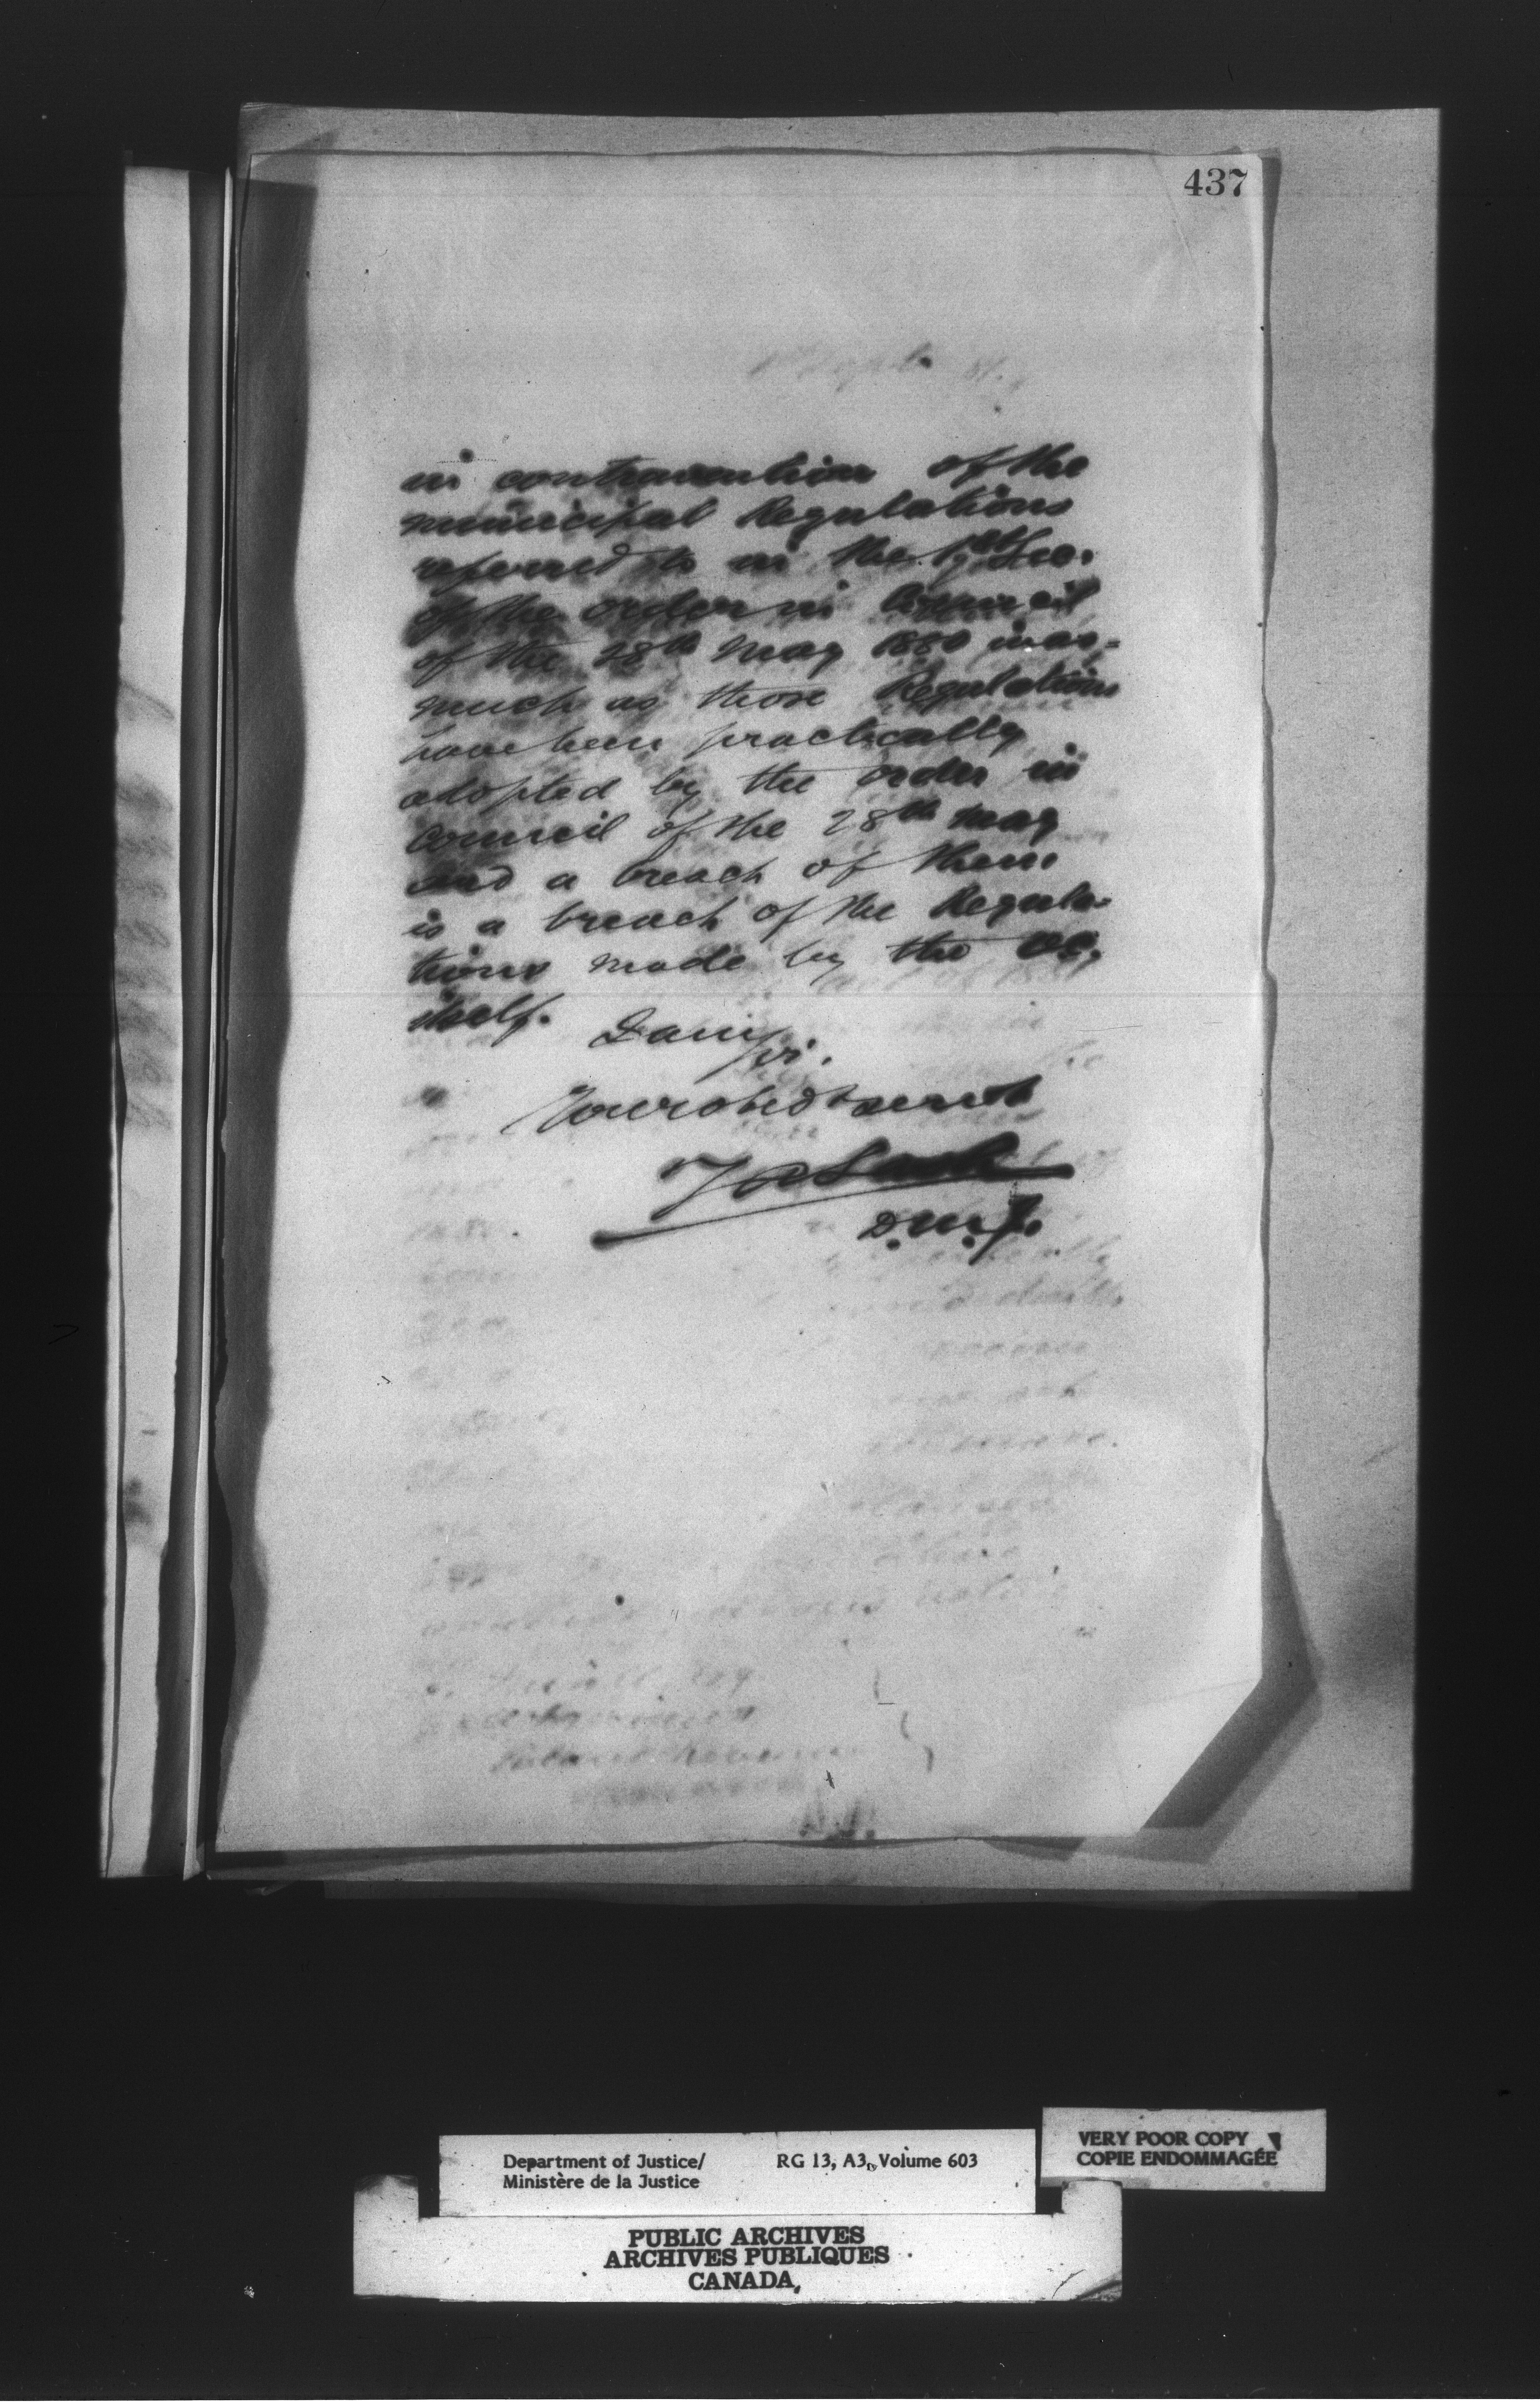 437
in contravention of the
municipal Regulations
referred to in the 1st Sec.
of the order in Council
of the 28th May 1880 inas-
much as those Regulations
have been practically
adopted by the order in
Council of the 28th May
and a breach of them
is a breach of the Regula-
tions made by the OC,
itself.
I am
Sir.
Your obedt servt
Z A Lash
D.M.J.
Department of Justice/
Ministère de la Justice
RG 13, A3, Volume 603
VERY POOR COPY
COPIE ENDOMMAGÉE
PUBLIC ARCHIVES
ARCHIVES PUBLIQUES
CANADA